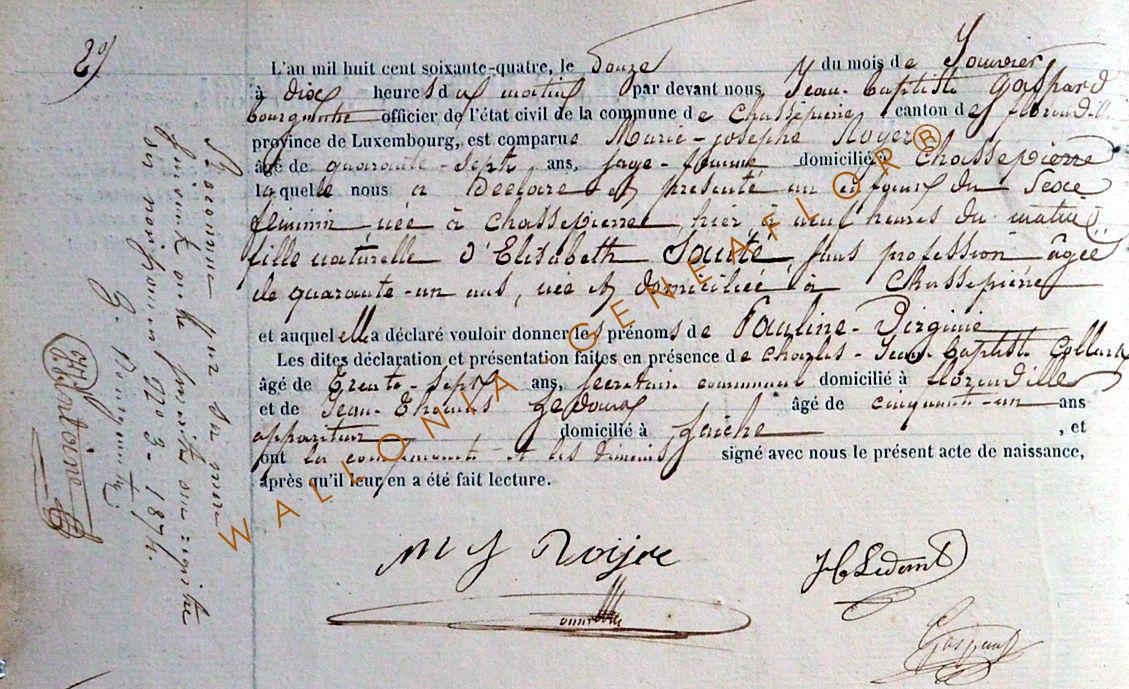 2
L'an mil huit cent soixante-quatre, le Douze du mois de Janvier
à dix heures du matin par devant nous, Jean-Baptiste Gaspard
officier de l'état civil de la commune de Chassepierre canton de florenville
province de Luxembourg, est comparue Marie-Josephe Royer
âgé de quarante-sept ans, sage-femme domicilié à Chassepierre
laquelle nous a Déclaré et présenté un enfant du sexe
féminin née à Chassepierre, hier à neuf heures du matin
fille naturelle d'Elisabeth Sauté, sans profession âgée
de quarante-un ans, née et domiciliée à Chassepierre
et auquel elle a déclaré vouloir donner les prénoms de Pauline-Virginie
Les dites déclaration et présentation faites en présence de Charles-Jean-Baptiste
âgé de trente-sept ans, secrétaire communal domicilié à florenville
et de Jean-Thomas Ledoux âgé de cinquante-un ans
appariteur domicilié à faiche, et
ont la comparante et les témoins signé avec nous le présent acte de naissance,
après qu'il leur en a été fait lecture.
M J Roijre
Gaspard
Reconnue par sa mère
suivant acte inscrit au registre
1874.
Fontoine
WALLONIA GENEAFLOR®